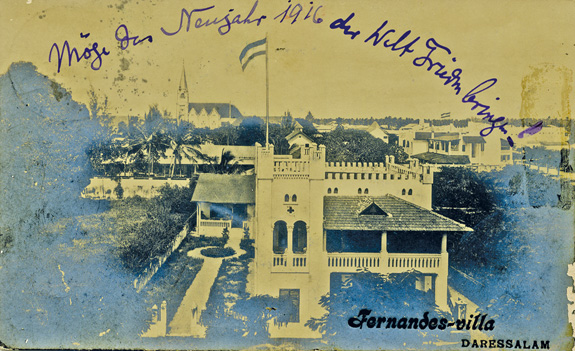 Möge das Neujahr 1916 der Welt Frieden bringen!
Fernandes-villa
DARESSALAM